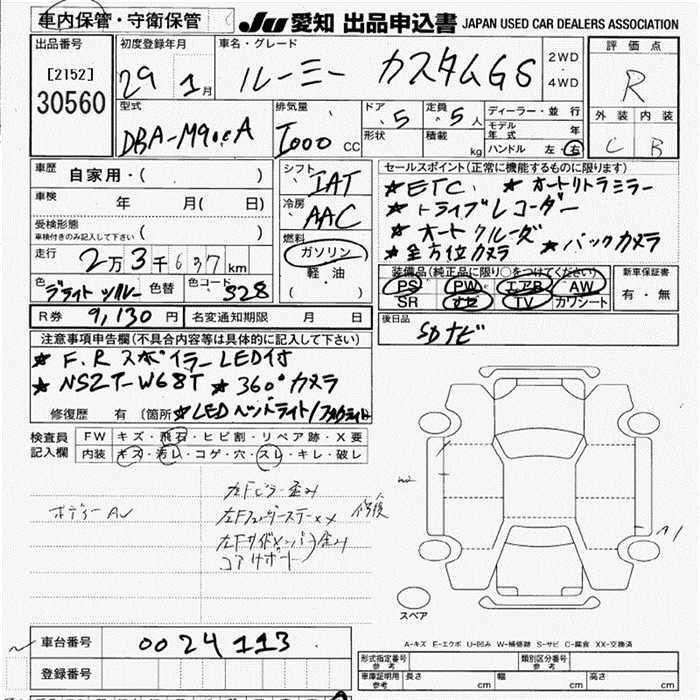 車内保管・守衛保管
JU 愛知 出品申込書 JAPAN USED CAR DEALERS ASSOCIATION
出品番号 初度登録年月 車名・グレード 2WD ・ 4WD 評価点
[2152] 29 1月 ルーミー カスタムGS R
30560
型式 排気量 ドア 5 定員 5人 ディーラー・並行 外装 内装
DBA-M900A 1000 CC 形状 積載 kg モデル年式 年 C B
ハンドル 左・右
車歴 自家用・( ) シフト IAT セールスポイント(正常に機能するものに限ります)
車検 年 月( 日) 冷房 AAC ★ETC ★オートリトラミラー
受検形態 ★ドライブレコーダー
車検付きのみ記入して下さい ( ) 燃料 ★オートクルーズ
走行 2万3千637km ガソリン ★全方位カメラ ★バックカメラ
軽油 ( ) 装備品(純正品に限り○をつけてください) 新車保証書
色 ブライトシルバー 色替 色コード S28 PS PW エアB AW 有・無
SR ナビ TV カワシート
R券 9,130円 名変通知期限 月 日 後日品
SDナビ
注意事項申告欄(不具合内容等は具体的に記入して下さい)
★F.Rスポイラー LED付
★NSZT-W68T ★360°カメラ
修復歴 有 (箇所 ★LEDヘッドライト/フォグライト
検査員記入欄 FW キズ・飛石・ヒビ割・リペア跡・X要
内装 キズ・汚レ・コゲ・穴・スレ・キレ・破レ
左Fピラー歪み
ボデーAU 左FフェンダーステーXX 修後
左Fサイドメンバー歪み
コアサポート
A1
スペア
A-キズ E-エクボ U-凹み W-補修跡 S-サビ C-腐食 XX-交換済
車台番号 0024113
形式指定番号 参考 類別区分番号 参考
登録番号 車庫証明用 参考 長さ cm 幅 cm 高さ cm